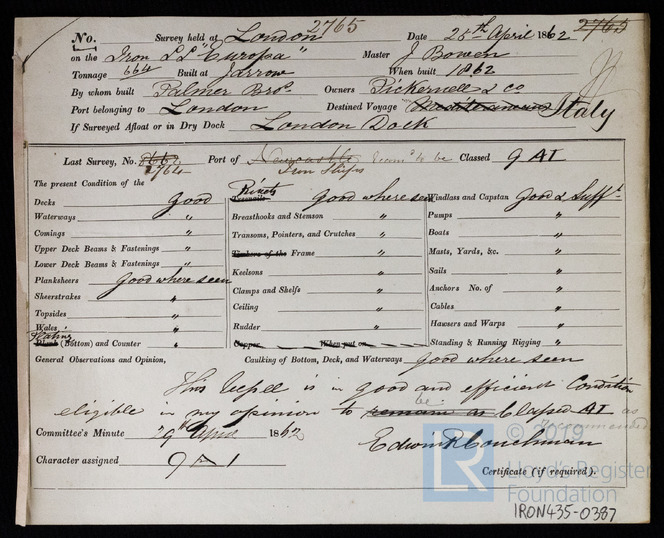 No. 2765 Survey held at London Date 25th April 1862 2765
on the Iron S.S "Europa" Master J Bowen
Tonnage 664 Built at Jarrow When built 1862
By whom built Palmer Bros. Owners Pickernell & Co
Port belonging to London Destined Voyage Mediterranean Italy
If Surveyed Afloat or in Dry Dock London Dock
Last Survey, No. 2764 Port of Newcastle Recomd to be Classed 9 A1
Iron Ships
The present Condition of the
Decks good
Waterways "
Comings "
Upper Deck Beams & Fastenings "
Lower Deck Beams & Fastenings "
Planksheers good where seen
Sheerstrakes "
Topsides "
Wales "
Plating
Plank (Bottom) and Counter "
Rivets
Treenails good where seen
Breasthooks and Stemson "
Transoms, Pointers, and Crutches "
Timbers of the Frame "
Keelsons "
Clamps and Shelfs "
Ceiling "
Rudder "
Copper When put on
Windlass and Capstan Good & Sufft.
Pumps "
Boats "
Masts, Yards, &c. "
Sails "
Anchors No. of "
Cables "
Hawsers and Warps "
Standing & Running Rigging "
General Observations and Opinion, Caulking of Bottom, Deck, and Waterways good where seen
This Vessel is in good and efficient Condition
eligible in my opinion to remain as be Classed A1 as
recommended
Committee's Minute 29th April 1862
Edwin R Couchman
Character assigned 9 A 1
Certificate (if required).
© 2019
LR
Lloyd's Register
Foundation
IRON435-0387